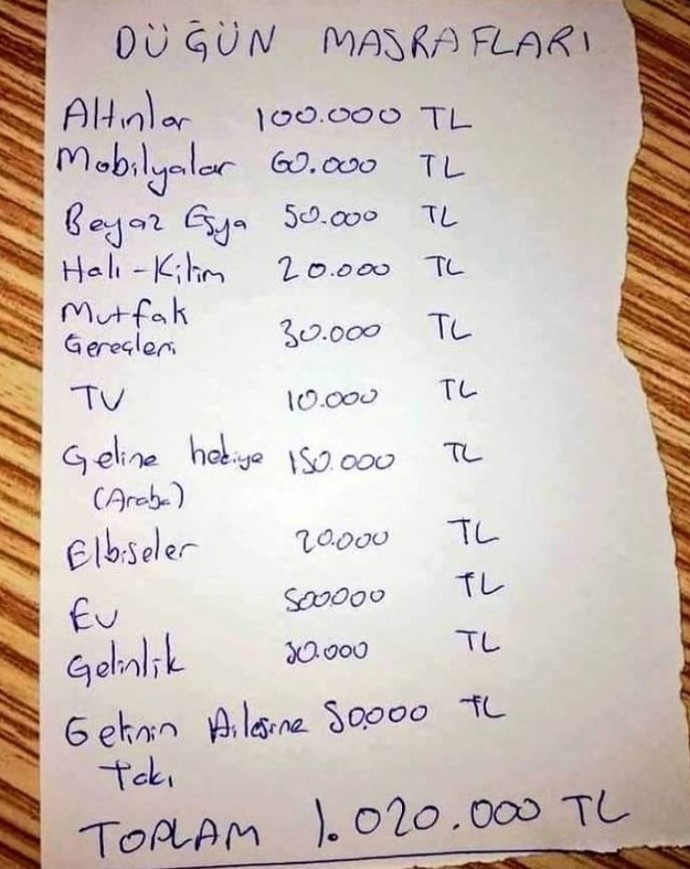 DÜĞÜN MASRAFLARI
Altınlar 100.000 TL
Mobilyalar 60.000 TL
Beyaz Eşya 50.000 TL
Halı-Kilim 20.000 TL
Mutfak
Gereçleri 30.000 TL
TV 10.000 TL
Geline hediye 150.000 TL
(Araba)
Elbiseler 20.000 TL
Ev 500000 TL
Gelinlik 30.000 TL
Gelinin Ailesine 50.000 TL
Takı
TOPLAM 1.020.000 TL